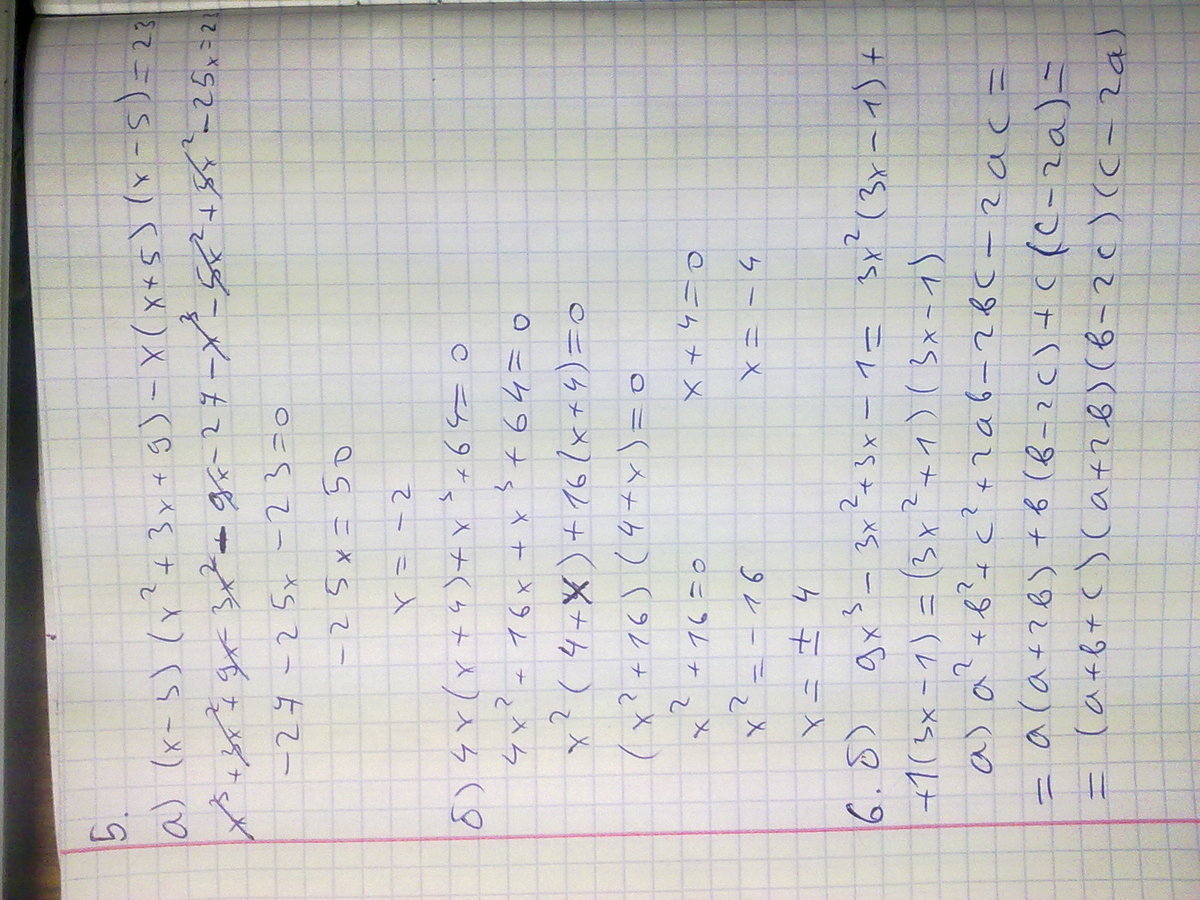 5.
а) (x-3)(x²+3x+9)-x(x+5)(x-5)=23
x³+3x²+9x-3x²-9x-27-x³-5x²+5x²-25x=23
-27-25x-23=0
-25x=50
x=-2
б) 4x(x+4)+x³+64=0
4x²+16x+x³+64=0
x²(4+x)+16(x+4)=0
(x²+16)(4+x)=0
x²+16=0 x+4=0
x²=-16 x=-4
x=±4
6. б) 9x³-3x²+3x-1= 3x²(3x-1)+
+1(3x-1)=(3x²+1)(3x-1)
а) a²+b²+c²+2ab-2bc-2ac=
=a(a+2b)+b(b-2c)+c(c-2a)=
=(a+b+c)(a+2b)(b-2c)(c-2a)